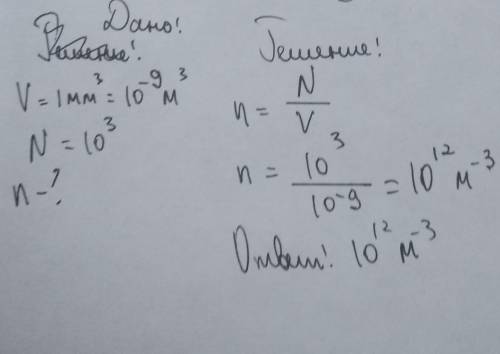 Дано!
Решение!
V = 1 мм³ = 10⁻⁹ м³
N = 10³
n - ?
Решение!
n = N / V
n = 10³ / 10⁻⁹ = 10¹² м⁻³
Ответ! 10¹² м⁻³